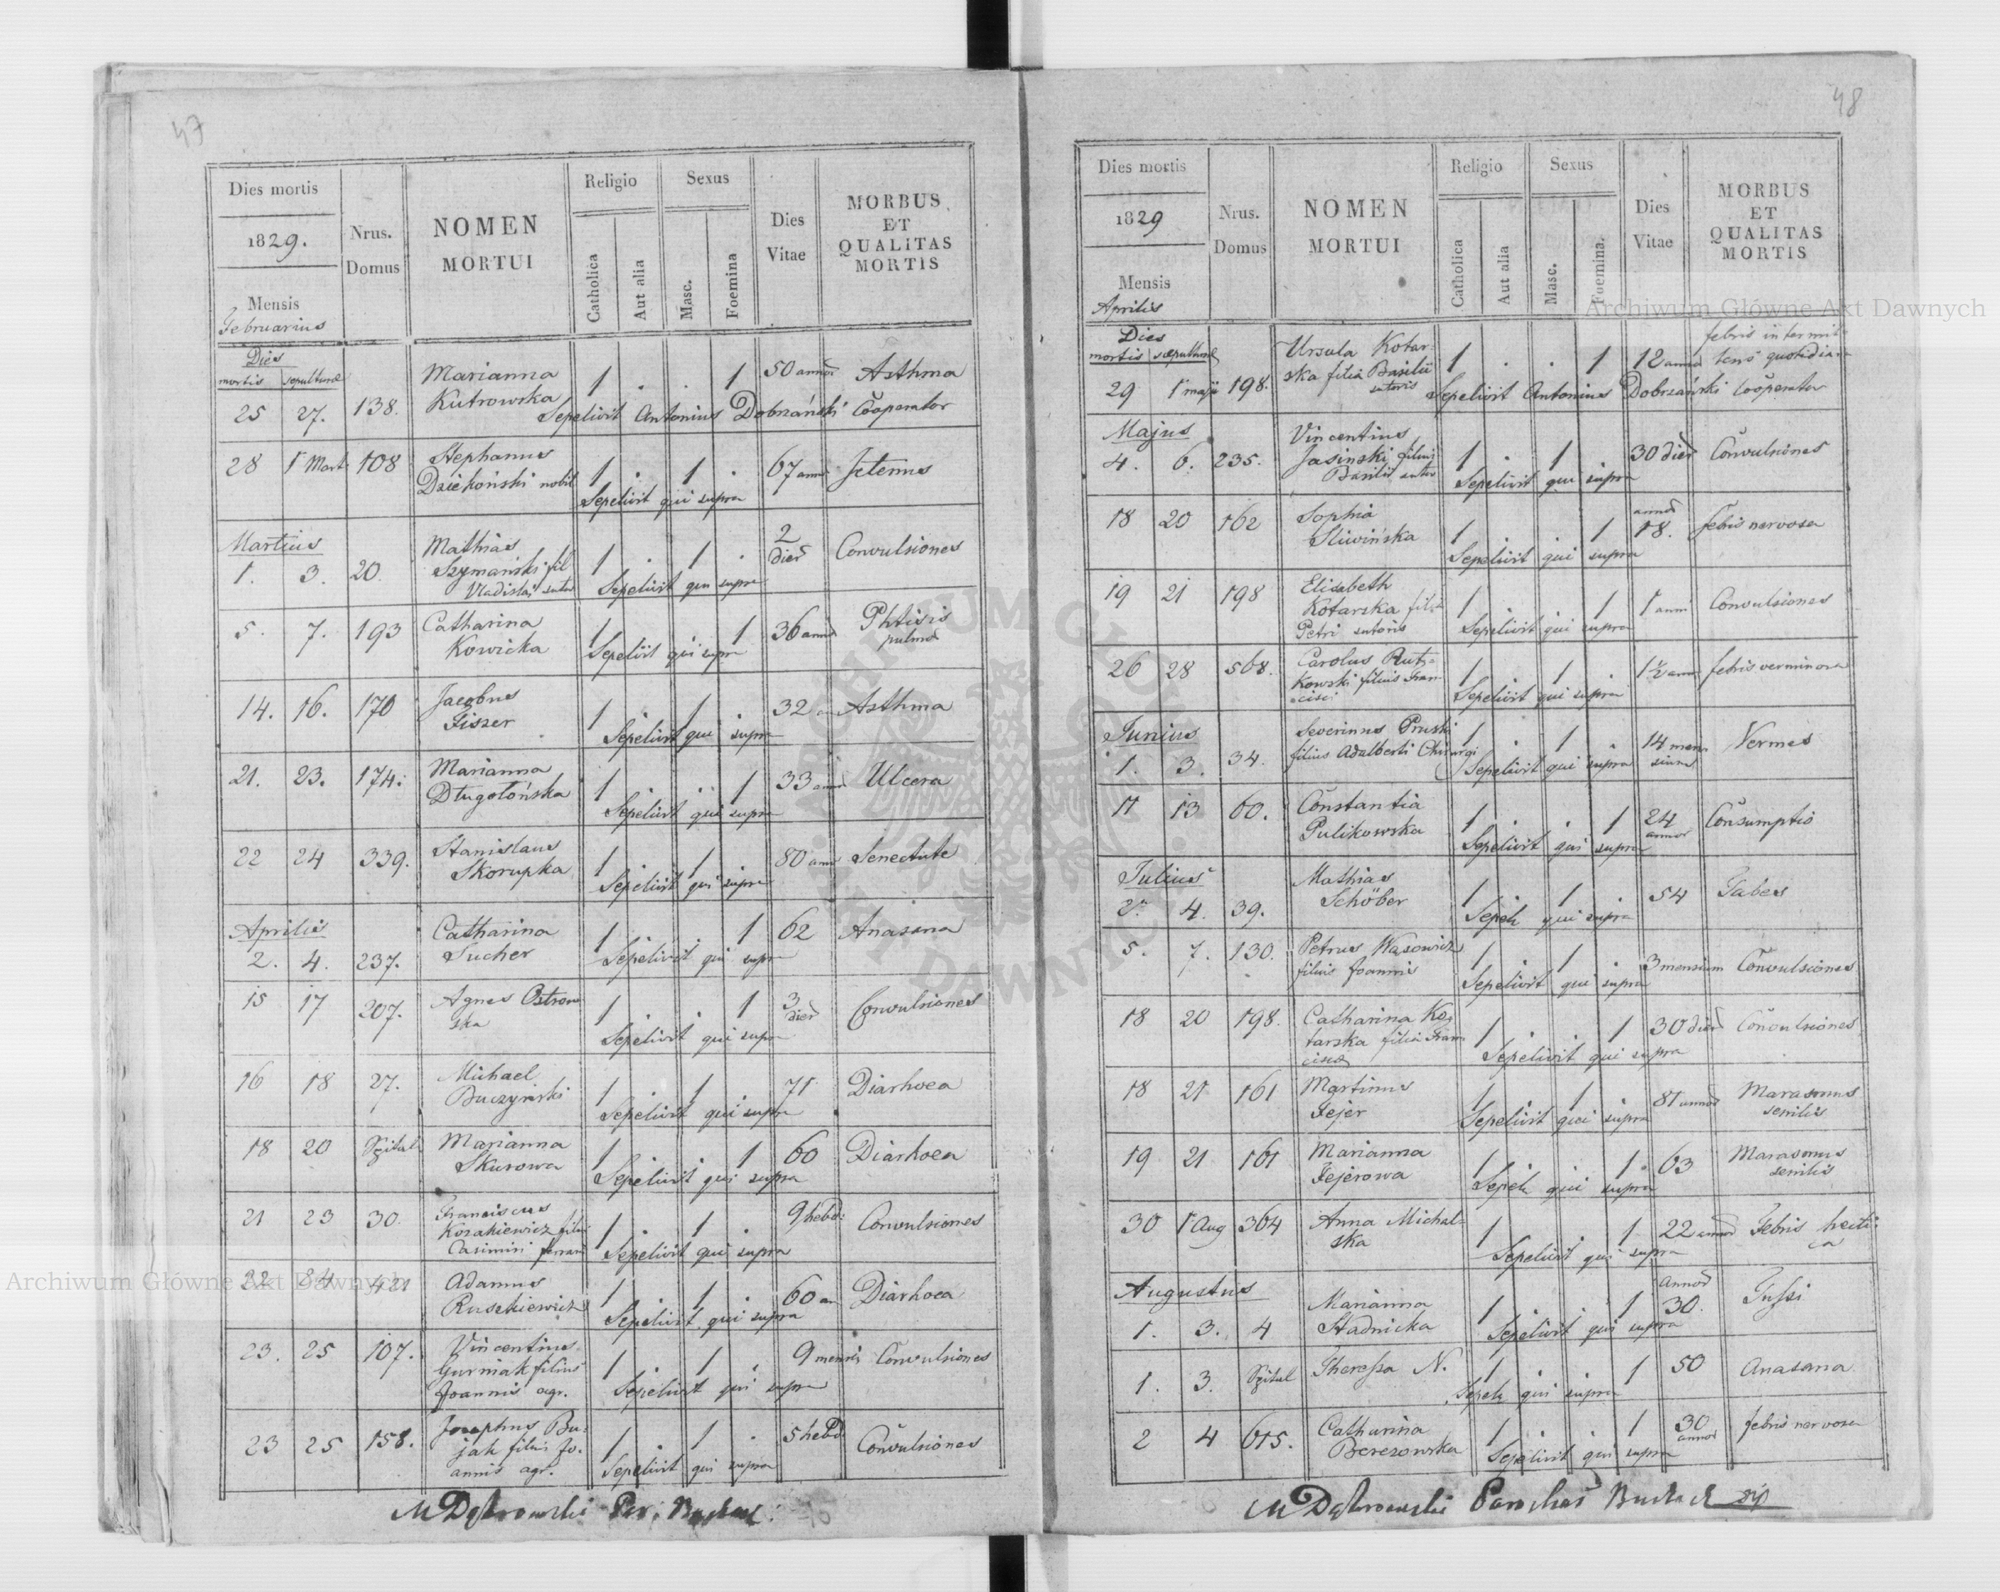 47
Dies mortis
1829.
Mensis
Februarius
Nrus.
Domus
NOMEN
MORTUI
Religio
Catholica
Aut alia
Sexus
Masc.
Foemina
Dies
Vitae
MORBUS
ET
QUALITAS
MORTIS
Dies
mortis sepulturae
25 27. 138. Marianna
Kutrowska 1 . . 1 50 annor Asthma
Sepelivit Antonius Dobrzański Cooperator
28 1 Mart 108 Stephanus
Dziekoński nobil 1 . 1 . 67 anno Icterus
Sepelivit qui supra
Martius
1. 3. 20. Mathias
Szymański fil
Vladislai sutor 1 . 1 . 2
dier Convulsiones
Sepelivit qui supra
5. 7. 193 Catharina
Kowicka 1 1 36 annor Phtisis
pulmo
Sepelivit qui supra
14. 16. 170 Jacobus
Fiszer 1 . 1 . 32 an Asthma
Sepelivit qui supra
21. 23. 174. Marianna
Długołońska 1 . . 1 33 annor Ulcera
Sepelivit qui supra
22 24 339. Stanislaus
Skorupka 1 . 1 . 80 ann Senectute
Sepelivit qui supra
Aprilis
2. 4. 237. Catharina
Sucher 1 . . 1 62 Anasana
Sepelivit qui supr
15 17 207. Agnes Ostrow
ska 1 . . 1 3
dier Convulsiones
Sepelivit qui supra
16 18 27. Michael
Buczyński 1 . 1 . 71 Diarhoea
Sepelivit qui supra
18 20 Szpital Marianna
Skurowa 1 . . 1 60 Diarhoea
Sepelivit qui supra
21 23 30. Franciscus
Kozakiewicz filius
Casimiri ferrari 1 . 1 . 9 hebd: Convulsiones
Sepelivit qui supra
22 24 421 Adamus
Ruszkiewicz 1 . 1 . 60 an Diarhoea
Sepelivit qui supra
23. 25 107. Vincentius
Gurniak filius
Joannis agr. 1 . 1 . 9 mensis Convulsiones
Sepelivit qui supra
23 25 158. Josephus Bu-
jak filius Jo-
annis agr. 1 . 1 . 5 hebd Convulsiones
Sepelivit qui supra
M Dąbrowski Par:
48
Dies mortis
1829
Mensis
Aprilis
Nrus.
Domus
NOMEN
MORTUI
Religio
Catholica
Aut alia
Sexus
Masc.
Foemina.
Dies
Vitae
MORBUS
ET
QUALITAS
MORTIS
Dies
mortis sepulturae
29 1 maji 198. Ursula Kotar-
ska filia Basilii
sutoris 1 . . 1 12 annor febris intermit-
tens quotidiana
Sepelivit Antonius Dobrzański Cooperator
Majus
4. 6. 235. Vincentius
Jasinski filius
Basilii sutor 1 . 1 . 30 dier Convulsiones
Sepelivit qui supra
18 20 162 Sophia
Sliwińska 1 . . 1 annor
18. febris nervosa
Sepelivit qui supra
19 21 198 Elisabeth
Kotarska filia
Petri sutoris 1 . . 1 1 anni Convulsiones
Sepelivit qui supra
26 28 568. Carolus Rut-
kowski filius Fran-
cisci 1 . 1 . 1½ anni febris verminosa
Sepelivit qui supra
Junius
1. 3. 34. Severinus Pruski
filius Adalberti Chirurgi 1 . 1 . 14 men-
sium Vermes
Sepelivit qui supra
11 13 60. Constantia
Pulikowska 1 . . 1 24
annor Consumptio
Sepelivit qui supra
Julius
2. 4. 39. Mathias
Schöber 1 . 1 . 54 Tabes
Sepel: qui supra
5. 7. 130. Petrus Wąsowicz
filius Joannis 1 . 1 . 3 mensium Convulsiones
Sepelivit qui supra
18 20 198. Catharina Ko-
tarska filia Fran-
cisci 1 . . 1 30 dier Convulsiones
Sepelivit qui supra
18 21 161 Martinus
Fejer 1 . 1 . 81 annor Marasmus
senilis
Sepelivit qui supra
19 21 161 Marianna
Fejerowa 1 . . 1 63 Marasmus
senilis
Sepel: qui supra
30 1 Aug 364 Anna Michal-
ska 1 . . 1 22 annor Febris hecti-
ca
Sepelivit qui supra
Augustus
1. 3. 4 Marianna
Stadnicka 1 . . 1 Annor
30. Tussi
Sepelivit qui supra
1. 3. Szpital Theressa N. 1 . . 1 50 Anasana
Sepel: qui supra
2 4 615. Catharina
Berezowska 1 . . 1 30
annor febris nervosa
Sepelivit qui supra
M Dąbrowski Parochus
Archiwum Główne Akt Dawnych
Archiwum Główne Akt Dawnych
ARCHIWUM GŁÓWNE
AKT DAWNYCH